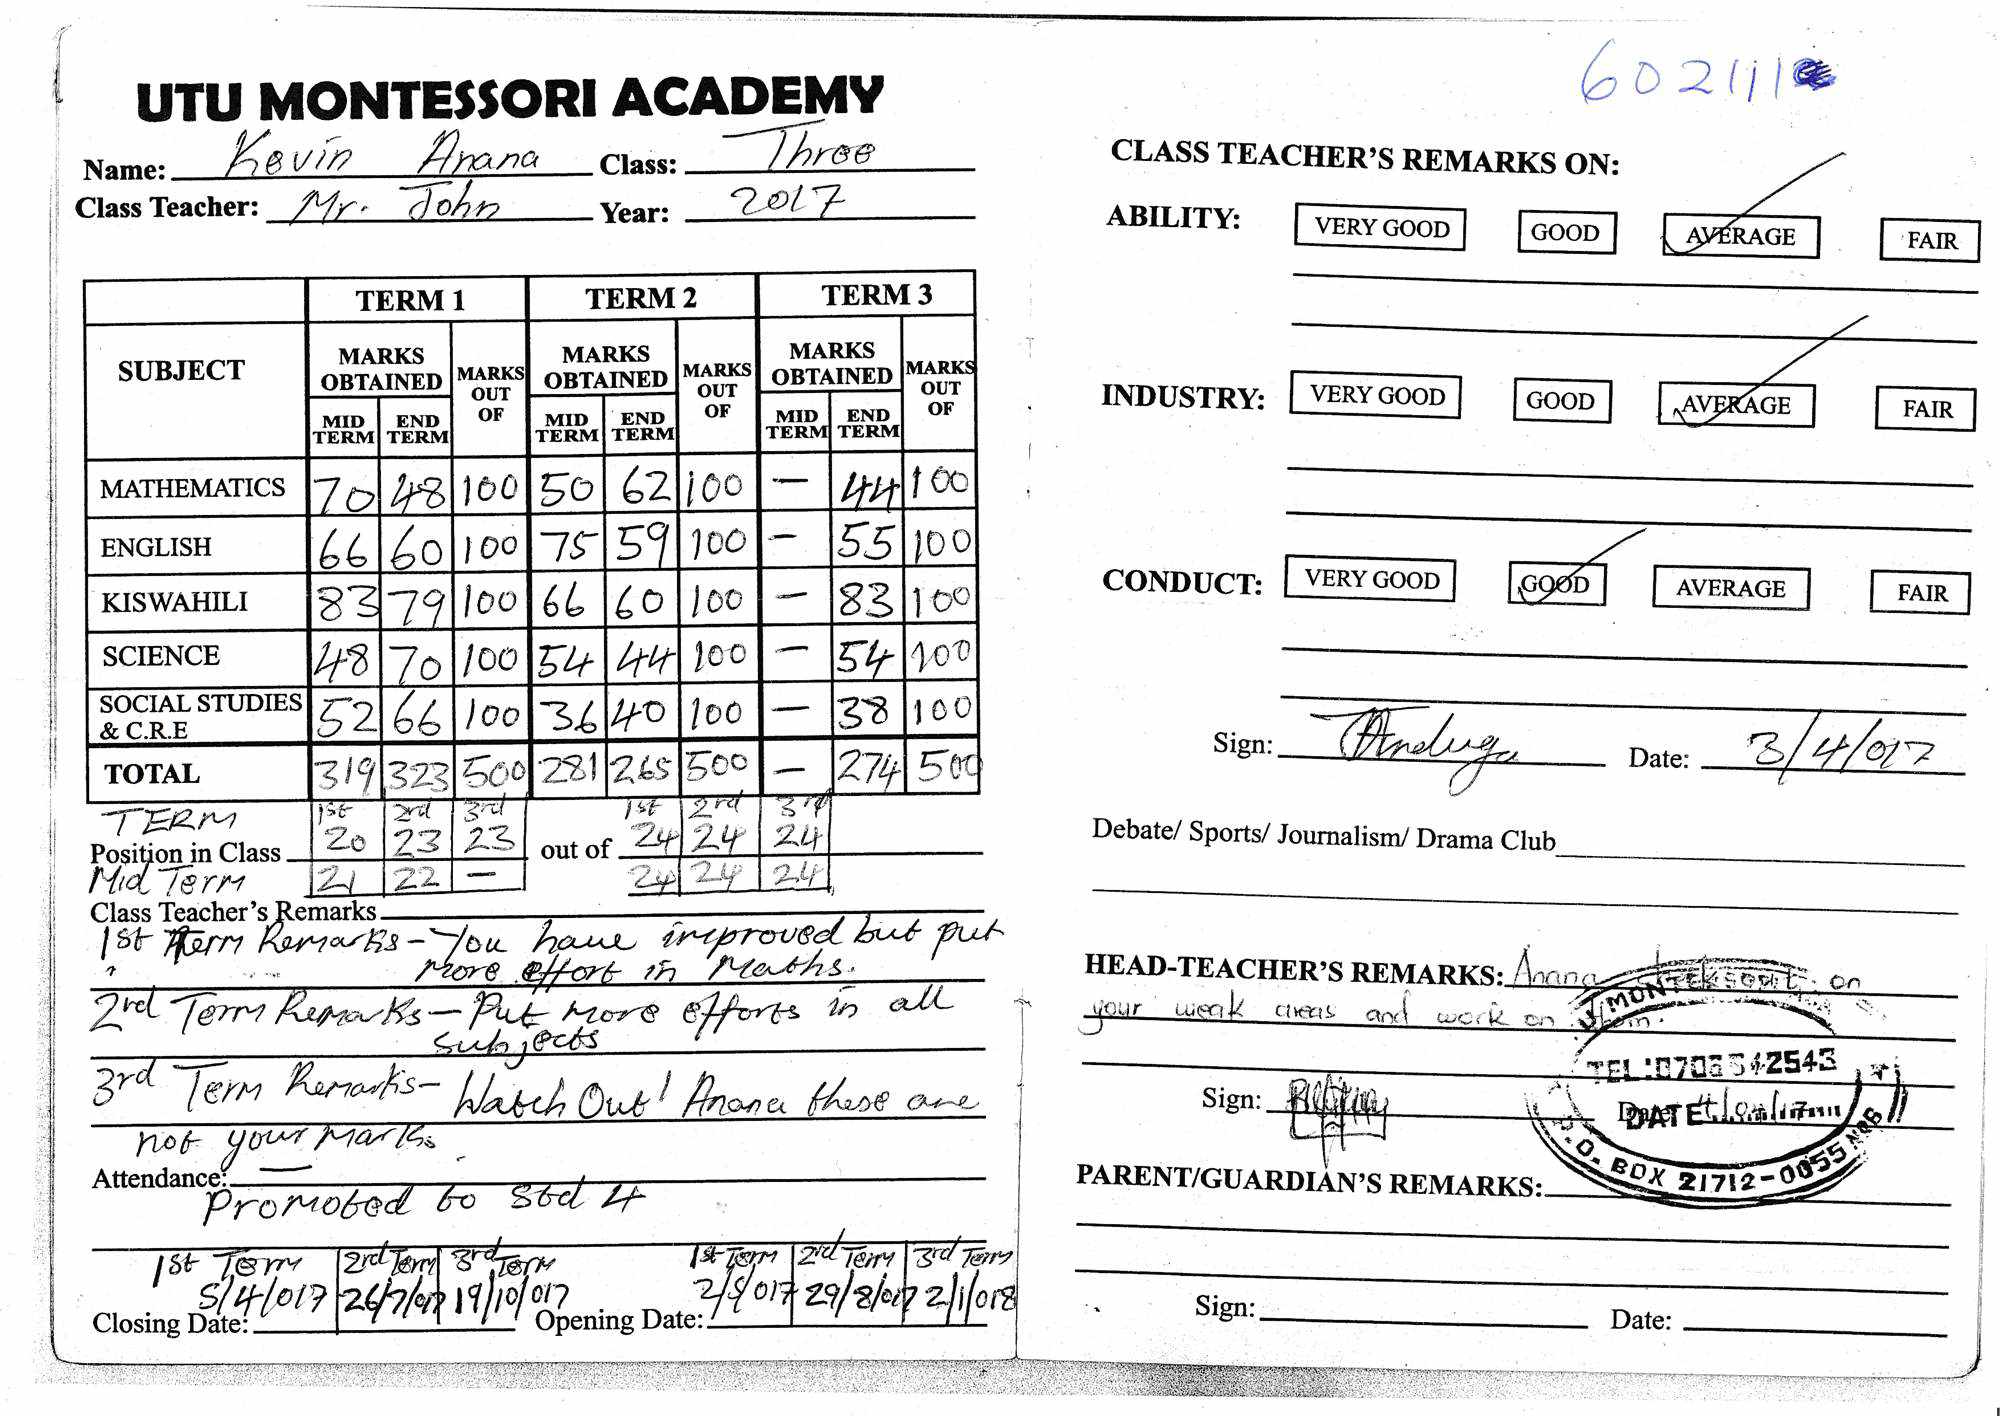 UTU MONTESSORI ACADEMY
Name: Kevin Anana Class: Three
Class Teacher: Mr. John Year: 2017
SUBJECT TERM 1 TERM 2 TERM 3
MARKS OBTAINED MARKS OUT OF MARKS OBTAINED MARKS OUT OF MARKS OBTAINED MARKS OUT OF
MID TERM END TERM MID TERM END TERM MID TERM END TERM
MATHEMATICS 70 48 100 50 62 100 — 44 100
ENGLISH 66 60 100 75 59 100 — 55 100
KISWAHILI 83 79 100 66 60 100 — 83 100
SCIENCE 48 70 100 54 44 100 — 54 100
SOCIAL STUDIES & C.R.E 52 66 100 36 40 100 — 38 100
TOTAL 319 323 500 281 265 500 — 274 500
TERM 1st 2rd 3rd 1st 2rd 3rd
Position in Class 20 23 23 out of 24 24 24
Mid Term 21 22 — 24 24 24
Class Teacher's Remarks
1st Term Remarks - You have improved but put
more effort in Maths.
2rd Term Remarks - Put more efforts in all
subjects
3rd Term Remarks - Watch Out! Anana these are
not your marks
Attendance: —
Promoted to Std 4
1st Term 2rd Term 3rd Term 1st Term 2rd Term 3rd Term
5/4/017 26/7/017 19/10/017 2/5/017 29/8/017 2/1/018
Closing Date: Opening Date:
60211
CLASS TEACHER'S REMARKS ON:
ABILITY: VERY GOOD GOOD AVERAGE FAIR
INDUSTRY: VERY GOOD GOOD AVERAGE FAIR
CONDUCT: VERY GOOD GOOD AVERAGE FAIR
Sign: Date: 3/4/017
Debate/ Sports/ Journalism/ Drama Club
HEAD-TEACHER'S REMARKS: Anana on
your weak areas and work on them.
TEL:0706542543
Sign: Date:
DATE
P.O. BOX 21712-0055 NRB
PARENT/GUARDIAN'S REMARKS:
Sign: Date: